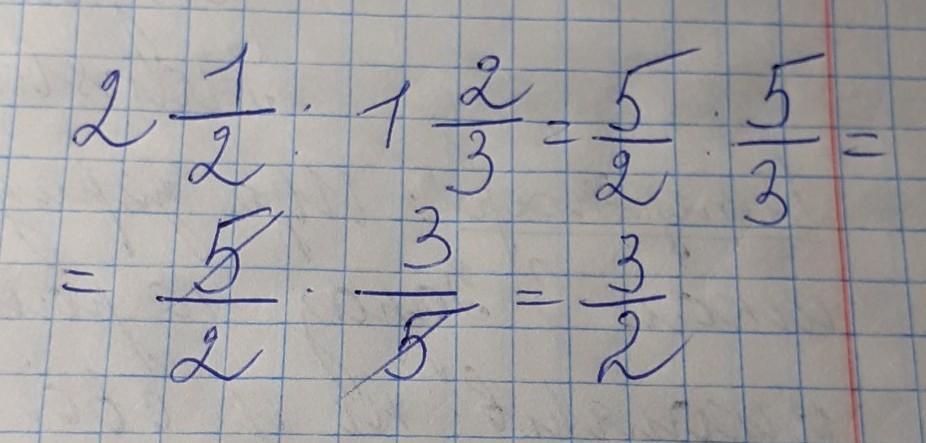 2 1/2 : 1 2/3 = 5/2 : 5/3 =
= 5/2 · 3/5 = 3/2